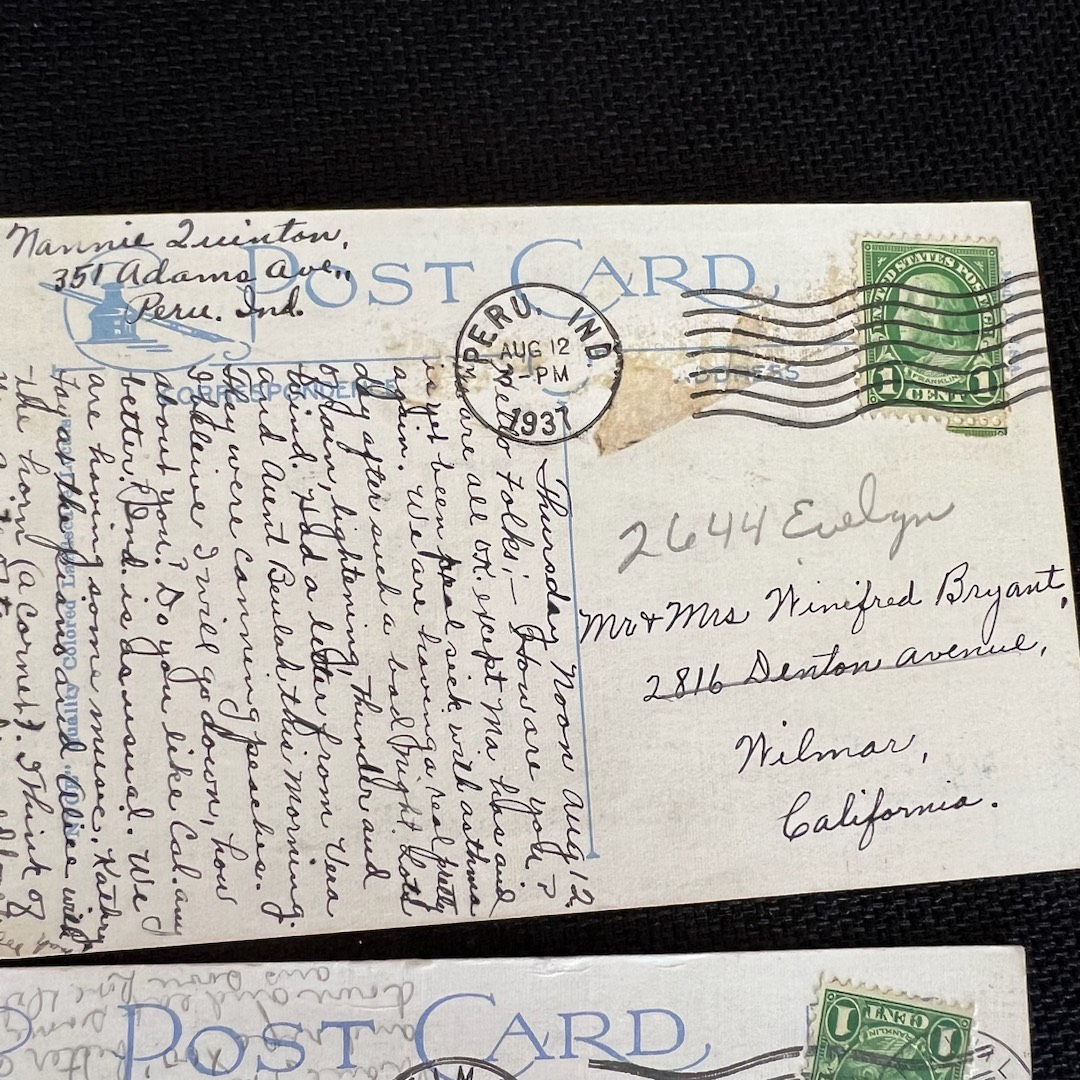 Nannie Quinton,
351 Adams Ave.,
Peru. Ind.
POST CARD
CORRESPONDENCE
ADDRESS
PERU. IND.
AUG 12
PM
1937
UNITED STATES POSTAGE
FRANKLIN
1 CENT 1
2644 Evelyn
Mr & Mrs Winifred Bryant,
2816 Denton avenue,
Wilmar,
California.
Thursday Noon Aug 12
Hello Folks; - How are you?
We are all O.K. except Ma has and
is yet been real sick with asthma
again. We are having a real pretty
day after such a bad night. Lots
of rain, lightening, thunder and
wind. Had a letter from Vera
and Aunt Beulah this morning.
They were canning peaches.
I beleive I will go down, how
about you? Do you like Cal. any
better? Ind. is as usual. We
are having some music. Kathryn
Fay at the piano and Alice with
the horn (a Cornet). I think of
Colored
POST CARD
1 CENT 1
FRANKLIN